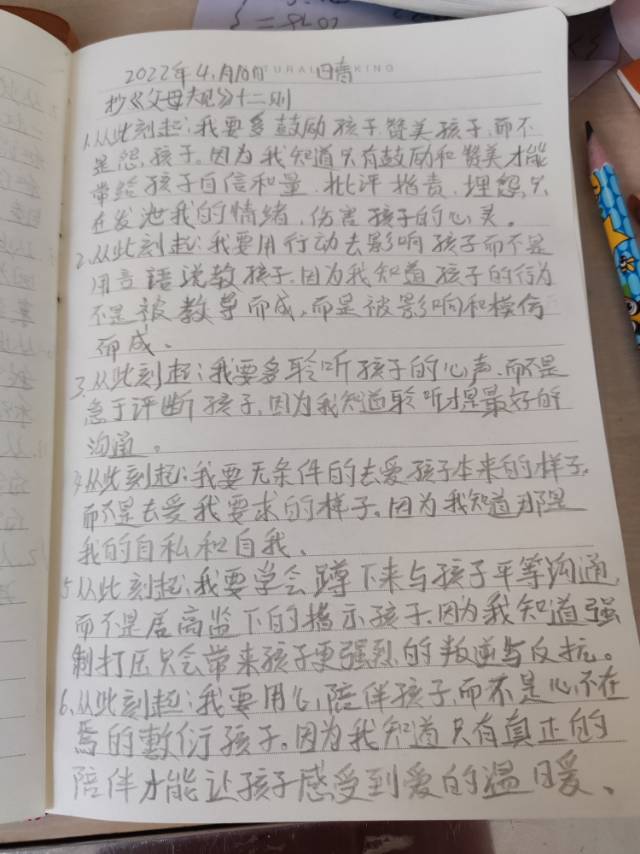 2022年4月10日 日 晴
抄《父母规》十二则
1.从此刻起:我要多鼓励孩子,赞美孩子,而不
是怨,孩子。因为我知道只有鼓励和赞美才能
带给孩子自信和量,批评指责,埋怨只
在发泄我的情绪,伤害孩子的心灵。
2.从此刻起:我要用行动去影响孩子而不是
用言语说教孩子.因为我知道孩子的行为
不是被教导而成,而是被影响和模仿
而成、
3.从此刻起:我要多聆听孩子的心声.而不是
急于评断孩子.因为我知道聆听才是最好的
沟通。
4.从此刻起:我要无条件的去爱孩子本来的样子.
而不是去爱我要求的样子.因为我知道那是
我的自私和自我、
5.从此刻起:我要学会蹲下来与孩子平等沟通,
而不是居高监下的指示孩子.因为我知道强
制打压只会带来孩子更强烈的叛逆与反抗。
6.从此刻起:我要用心陪伴孩子,而不是心不在
焉的敷衍孩子。因为我知道只有真正的
陪伴才能让孩子感受到爱的温暖、